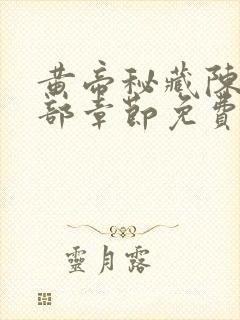 黄帝秘藏陳
部章節免費
靈月露